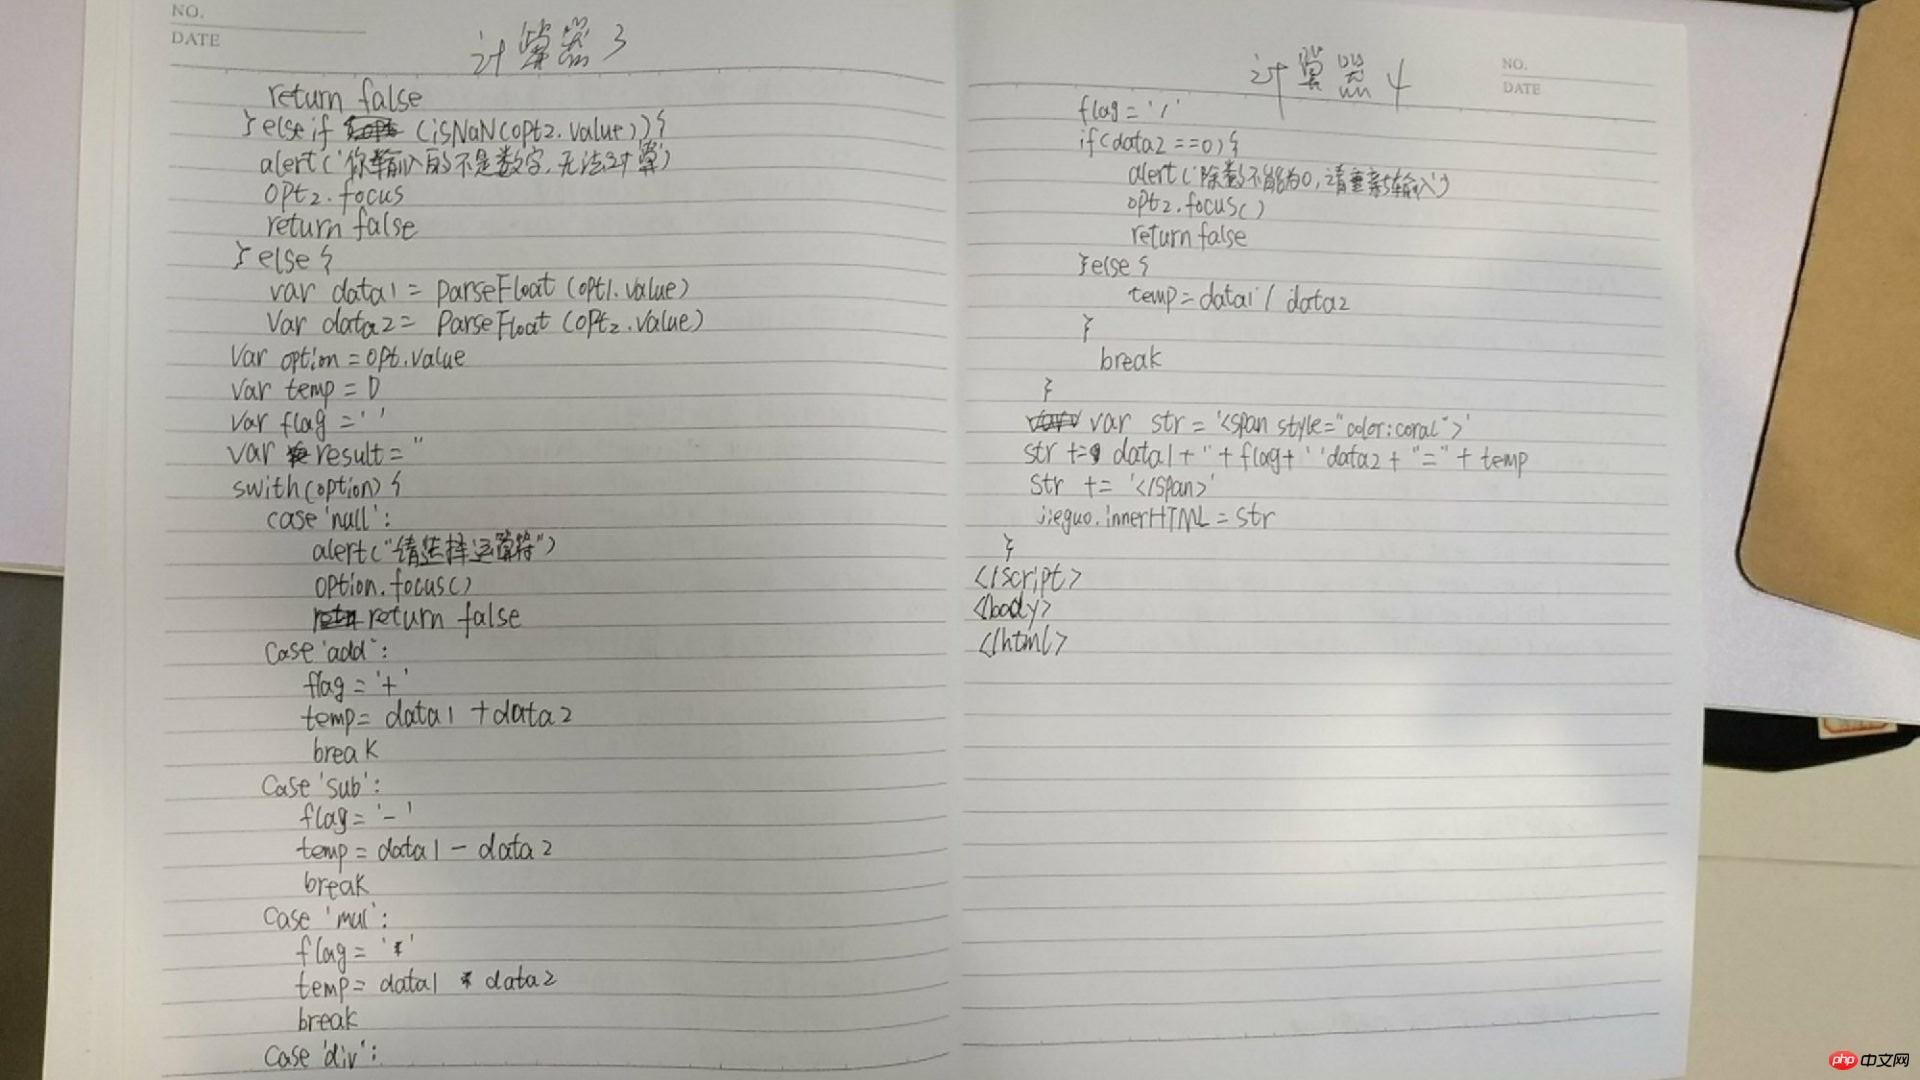 NO.
DATE
计算器 3
return false
}else if (isNaN(opt2.value)){
alert('你输入的不是数字,无法计算')
opt2.focus
return false
}else{
var data1 = parseFloat (opt1.value)
Var data2 = ParseFloat (opt2.value)
Var option = opt.value
Var temp = 0
Var flag = ' '
var result = ''
swith(option){
case 'null':
alert("请选择运算符")
option.focus()
return false
case 'add':
flag = '+'
temp = data1 + data2
break
case 'sub':
flag = '-'
temp = data1 - data2
break
case 'mul':
flag = '*'
temp = data1 * data2
break
case 'div':
计算器 4
NO.
DATE
flag = '/'
if(data2 ==0){
alert('除数不能为0,请重新输入')
opt2.focus()
return false
}else{
temp = data1 / data2
}
break
}
var str = '<span style="color:coral">'
str += data1 + '' + flag + ' 'data2 + "=" + temp
str += '</span>'
jieguo.innerHTML = str
}
</script>
</body>
</html>
php 中文网